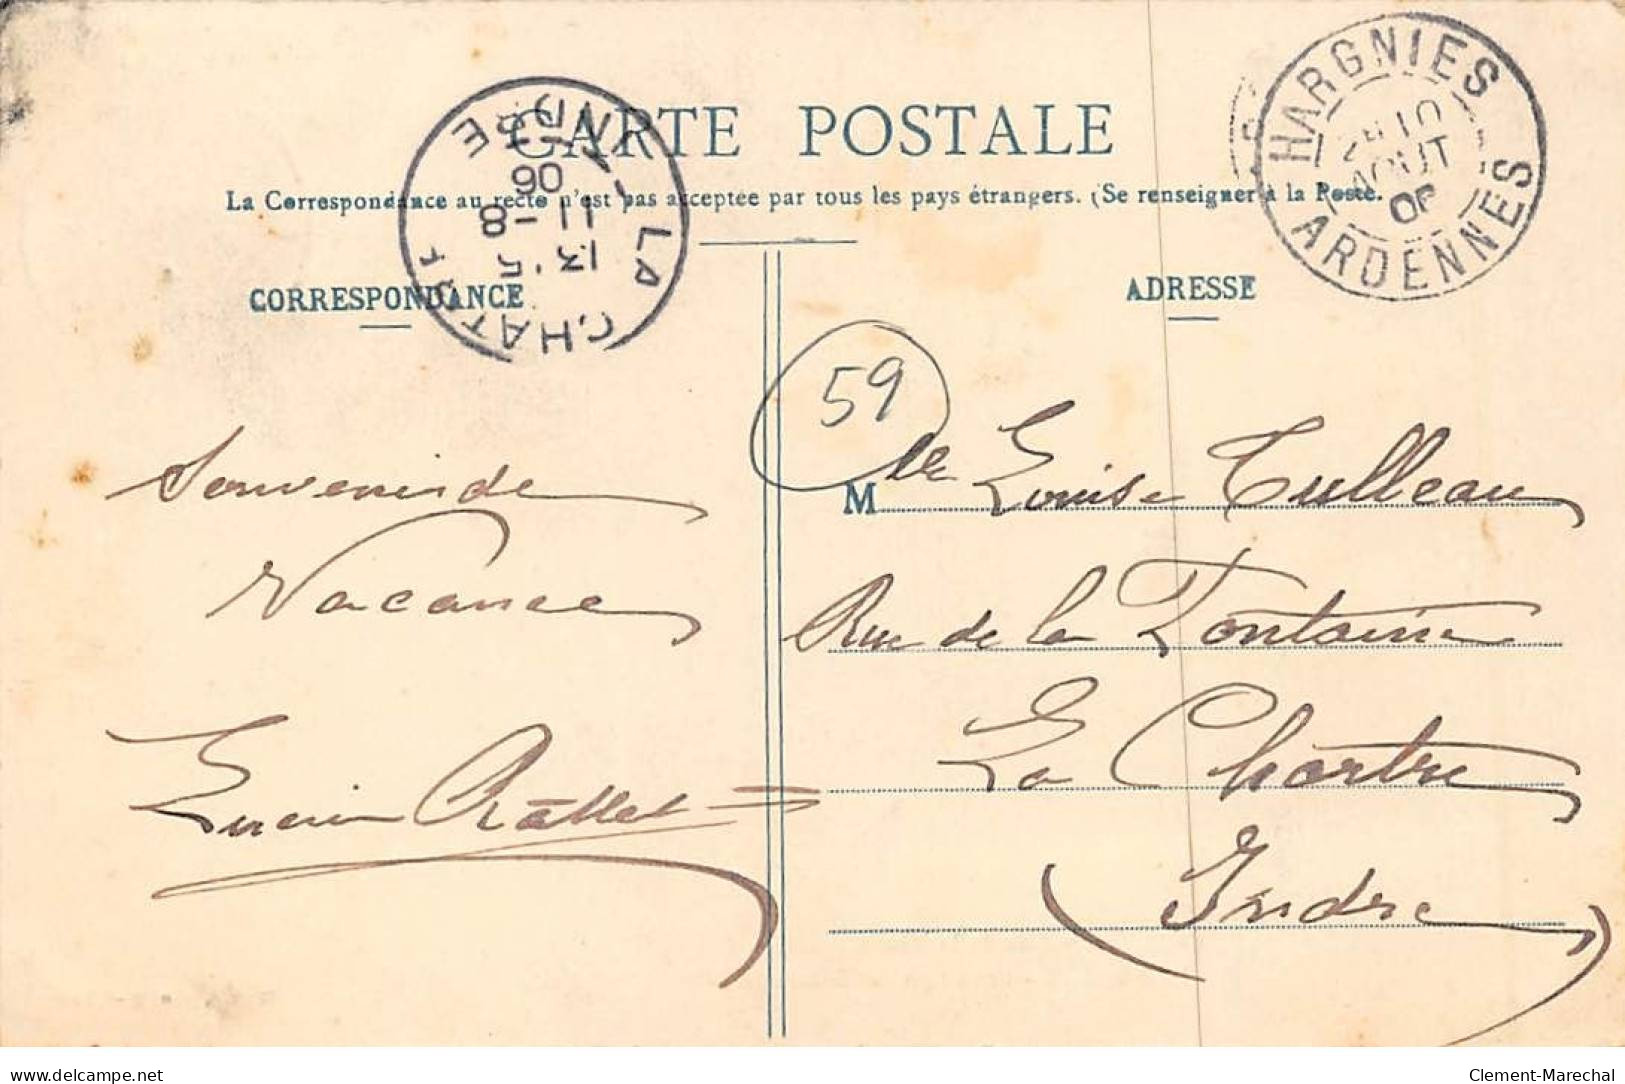 CARTE POSTALE
La Correspondance au recto n'est pas acceptée par tous les pays étrangers. (Se renseigner à la Poste.
CORRESPONDANCE
ADRESSE
HARGNIES
10
AOUT
06
ARDENNES
LA CHATRE
INDRE
13 5
11 -8
06
59
Souvenir de
Vacance
Lucien Rallet
Mlle Louise Tulleau
Rue de la Fontaine
La Chartre
(Indre)
delcampe.net
Clement-Marechal